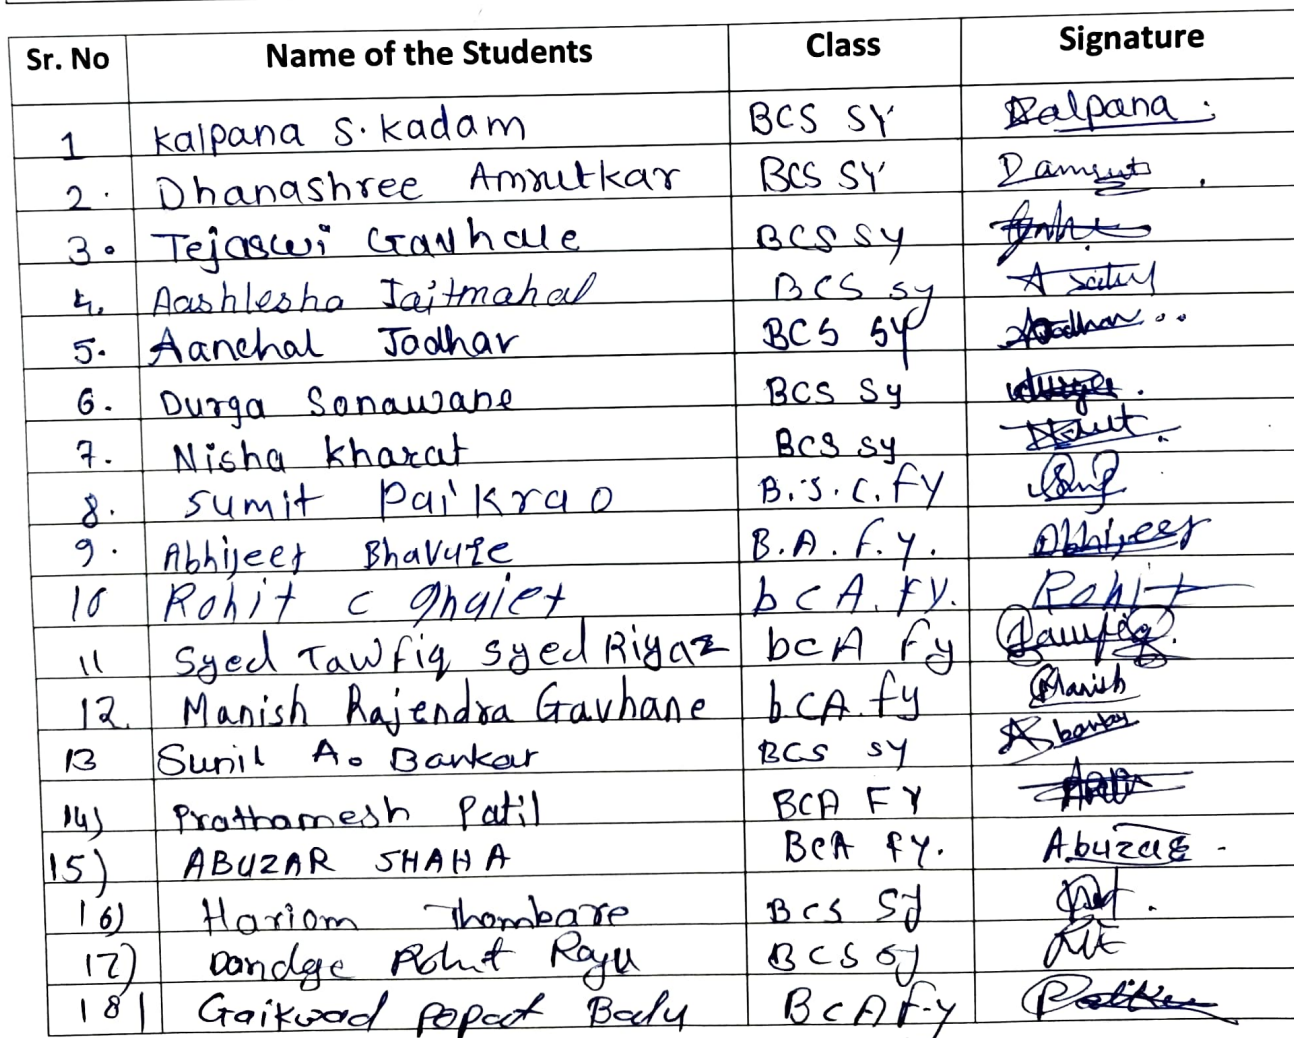 Sr. No Name of the Students Class Signature
1 Kalpana S. Kadam BCS SY Kalpana
2. Dhanashree Amrutkar BCS SY Damrut
3. Tejaswi Gavhale BCS SY
4. Aashlesha Jaitmahal BCS sy
5. Aanchal Jadhav BCS SY Jadhav
6. Durga Sonawane BCS Sy durga
7. Nisha Kharat BCS sy
8. Sumit Paikrao B.S.C. FY
9. Abhijeet Bhavure B.A. F.Y. Abhijeet
10 Rohit C Ghaiet bCA. FY. Rohit
11 Syed Tawfiq Syed Riyaz bCA Fy Tawfiq
12. Manish Rajendra Gavhane b.CA. fy Manish
13 Sunil A. Bankar BCS SY
14) Prathamesh Patil BCA FY
15) ABUZAR SHAHA BCA FY. Abuzar
16) Hariom Thombare BCS SY
17) Dandge Rohit Raju BCS SY
18) Gaikwad Popat Badu BCA F-Y